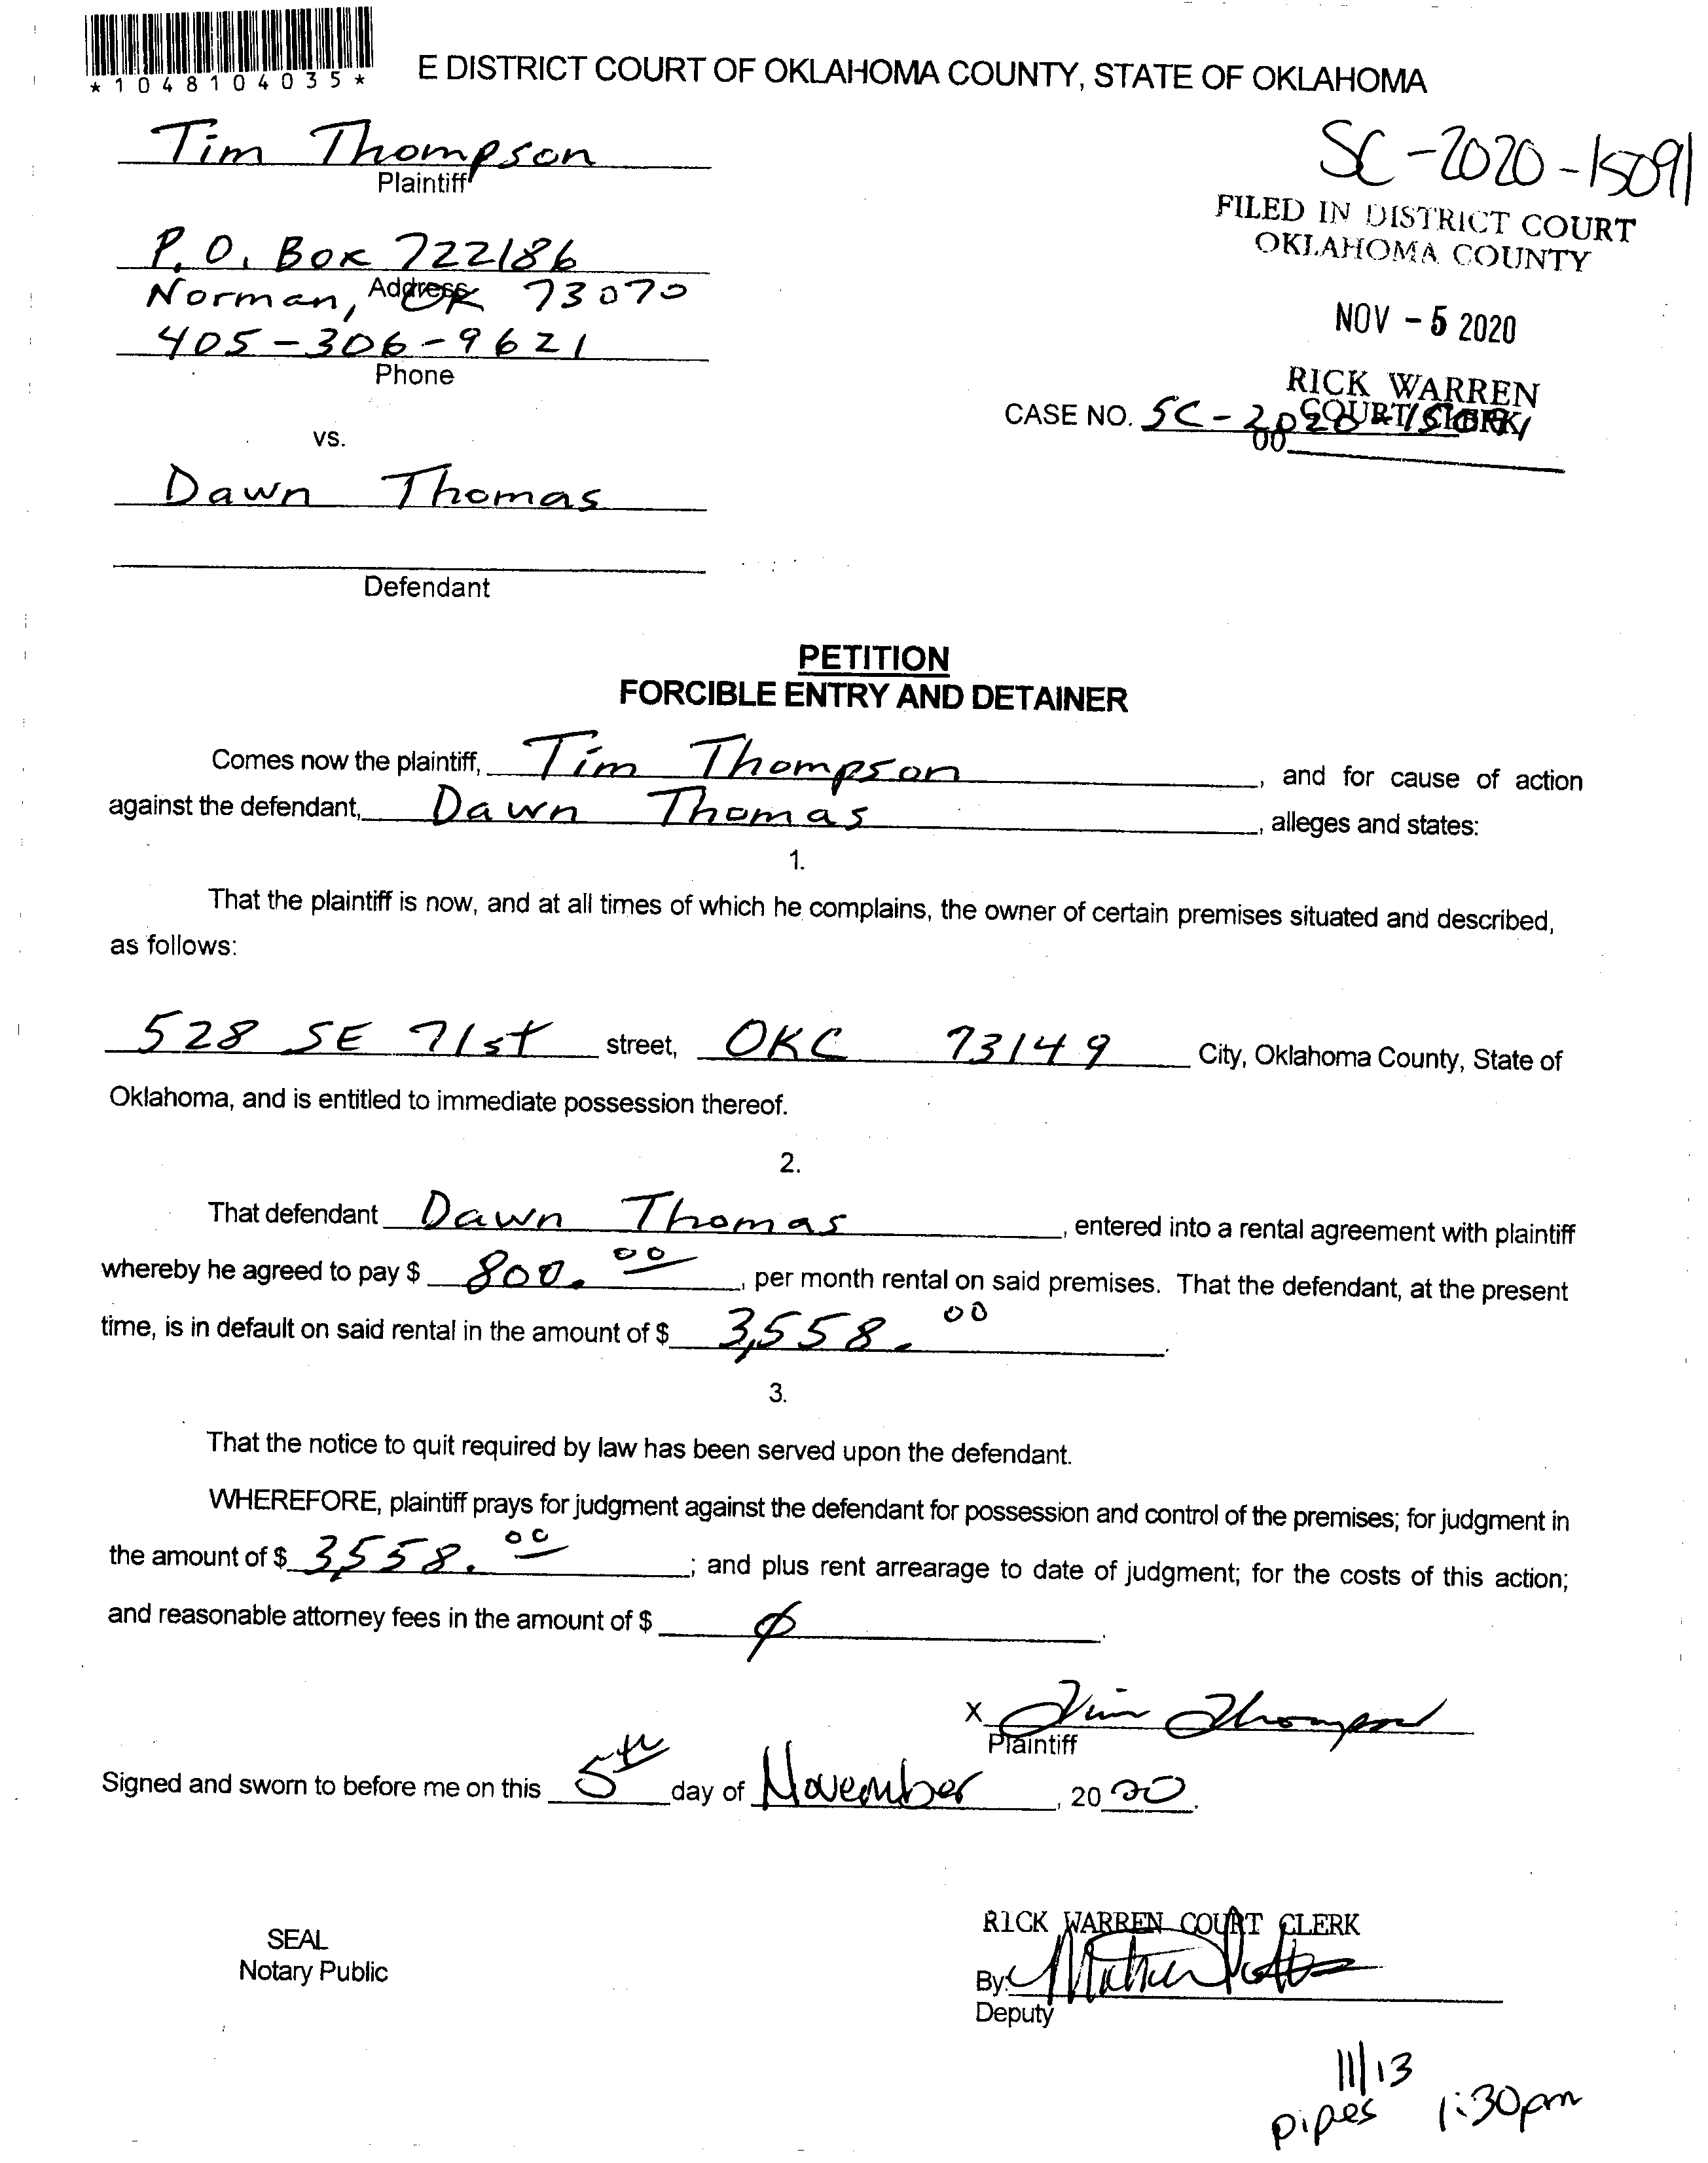 *1048104035*
E DISTRICT COURT OF OKLAHOMA COUNTY, STATE OF OKLAHOMA
Tim Thompson
Plaintiff
SC-2020-15091
FILED IN DISTRICT COURT
OKLAHOMA COUNTY
P.O. Box 722186
Address
Norman, OK 73070
NOV - 5 2020
405-306-9621
Phone
RICK WARREN
COURT CLERK
CASE NO. SC-2020-15091
00
vs.
Dawn Thomas
Defendant
PETITION
FORCIBLE ENTRY AND DETAINER
Comes now the plaintiff, Tim Thompson, and for cause of action
against the defendant, Dawn Thomas, alleges and states:
1.
That the plaintiff is now, and at all times of which he complains, the owner of certain premises situated and described,
as follows:
528 SE 71st street, OKC 73149 City, Oklahoma County, State of
Oklahoma, and is entitled to immediate possession thereof.
2.
That defendant Dawn Thomas, entered into a rental agreement with plaintiff
whereby he agreed to pay $ 800.00, per month rental on said premises. That the defendant, at the present
time, is in default on said rental in the amount of $ 3,558.00.
3.
That the notice to quit required by law has been served upon the defendant.
WHEREFORE, plaintiff prays for judgment against the defendant for possession and control of the premises; for judgment in
the amount of $ 3,558.00; and plus rent arrearage to date of judgment; for the costs of this action;
and reasonable attorney fees in the amount of $ ∅.
X Tim Thompson
Plaintiff
Signed and sworn to before me on this 5th day of November, 2020.
SEAL
Notary Public
RICK WARREN COURT CLERK
By:
Deputy
11/13
pipes 1:30pm